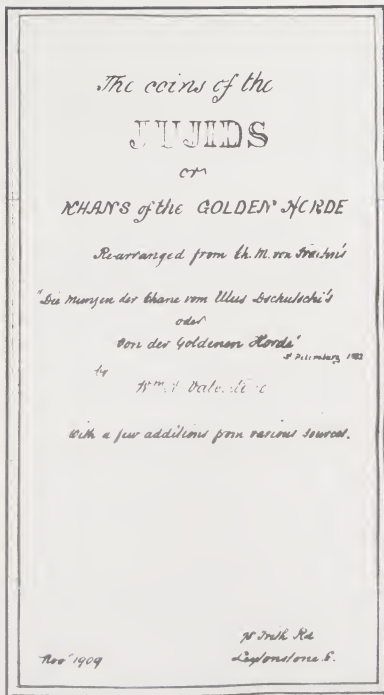 The coins of the
JUJIDS
or
KHANS of the GOLDEN HORDE
Re-arranged from Ch. M. von Fraehn's
"Die Munzen der Chane vom Ulus Dschutschi's
oder
von der Goldenen Horde"
St Petersburg
by
Wm. H Valentine
With a few additions from various sources.
Rd
Nov 1909
Leytonstone. E.